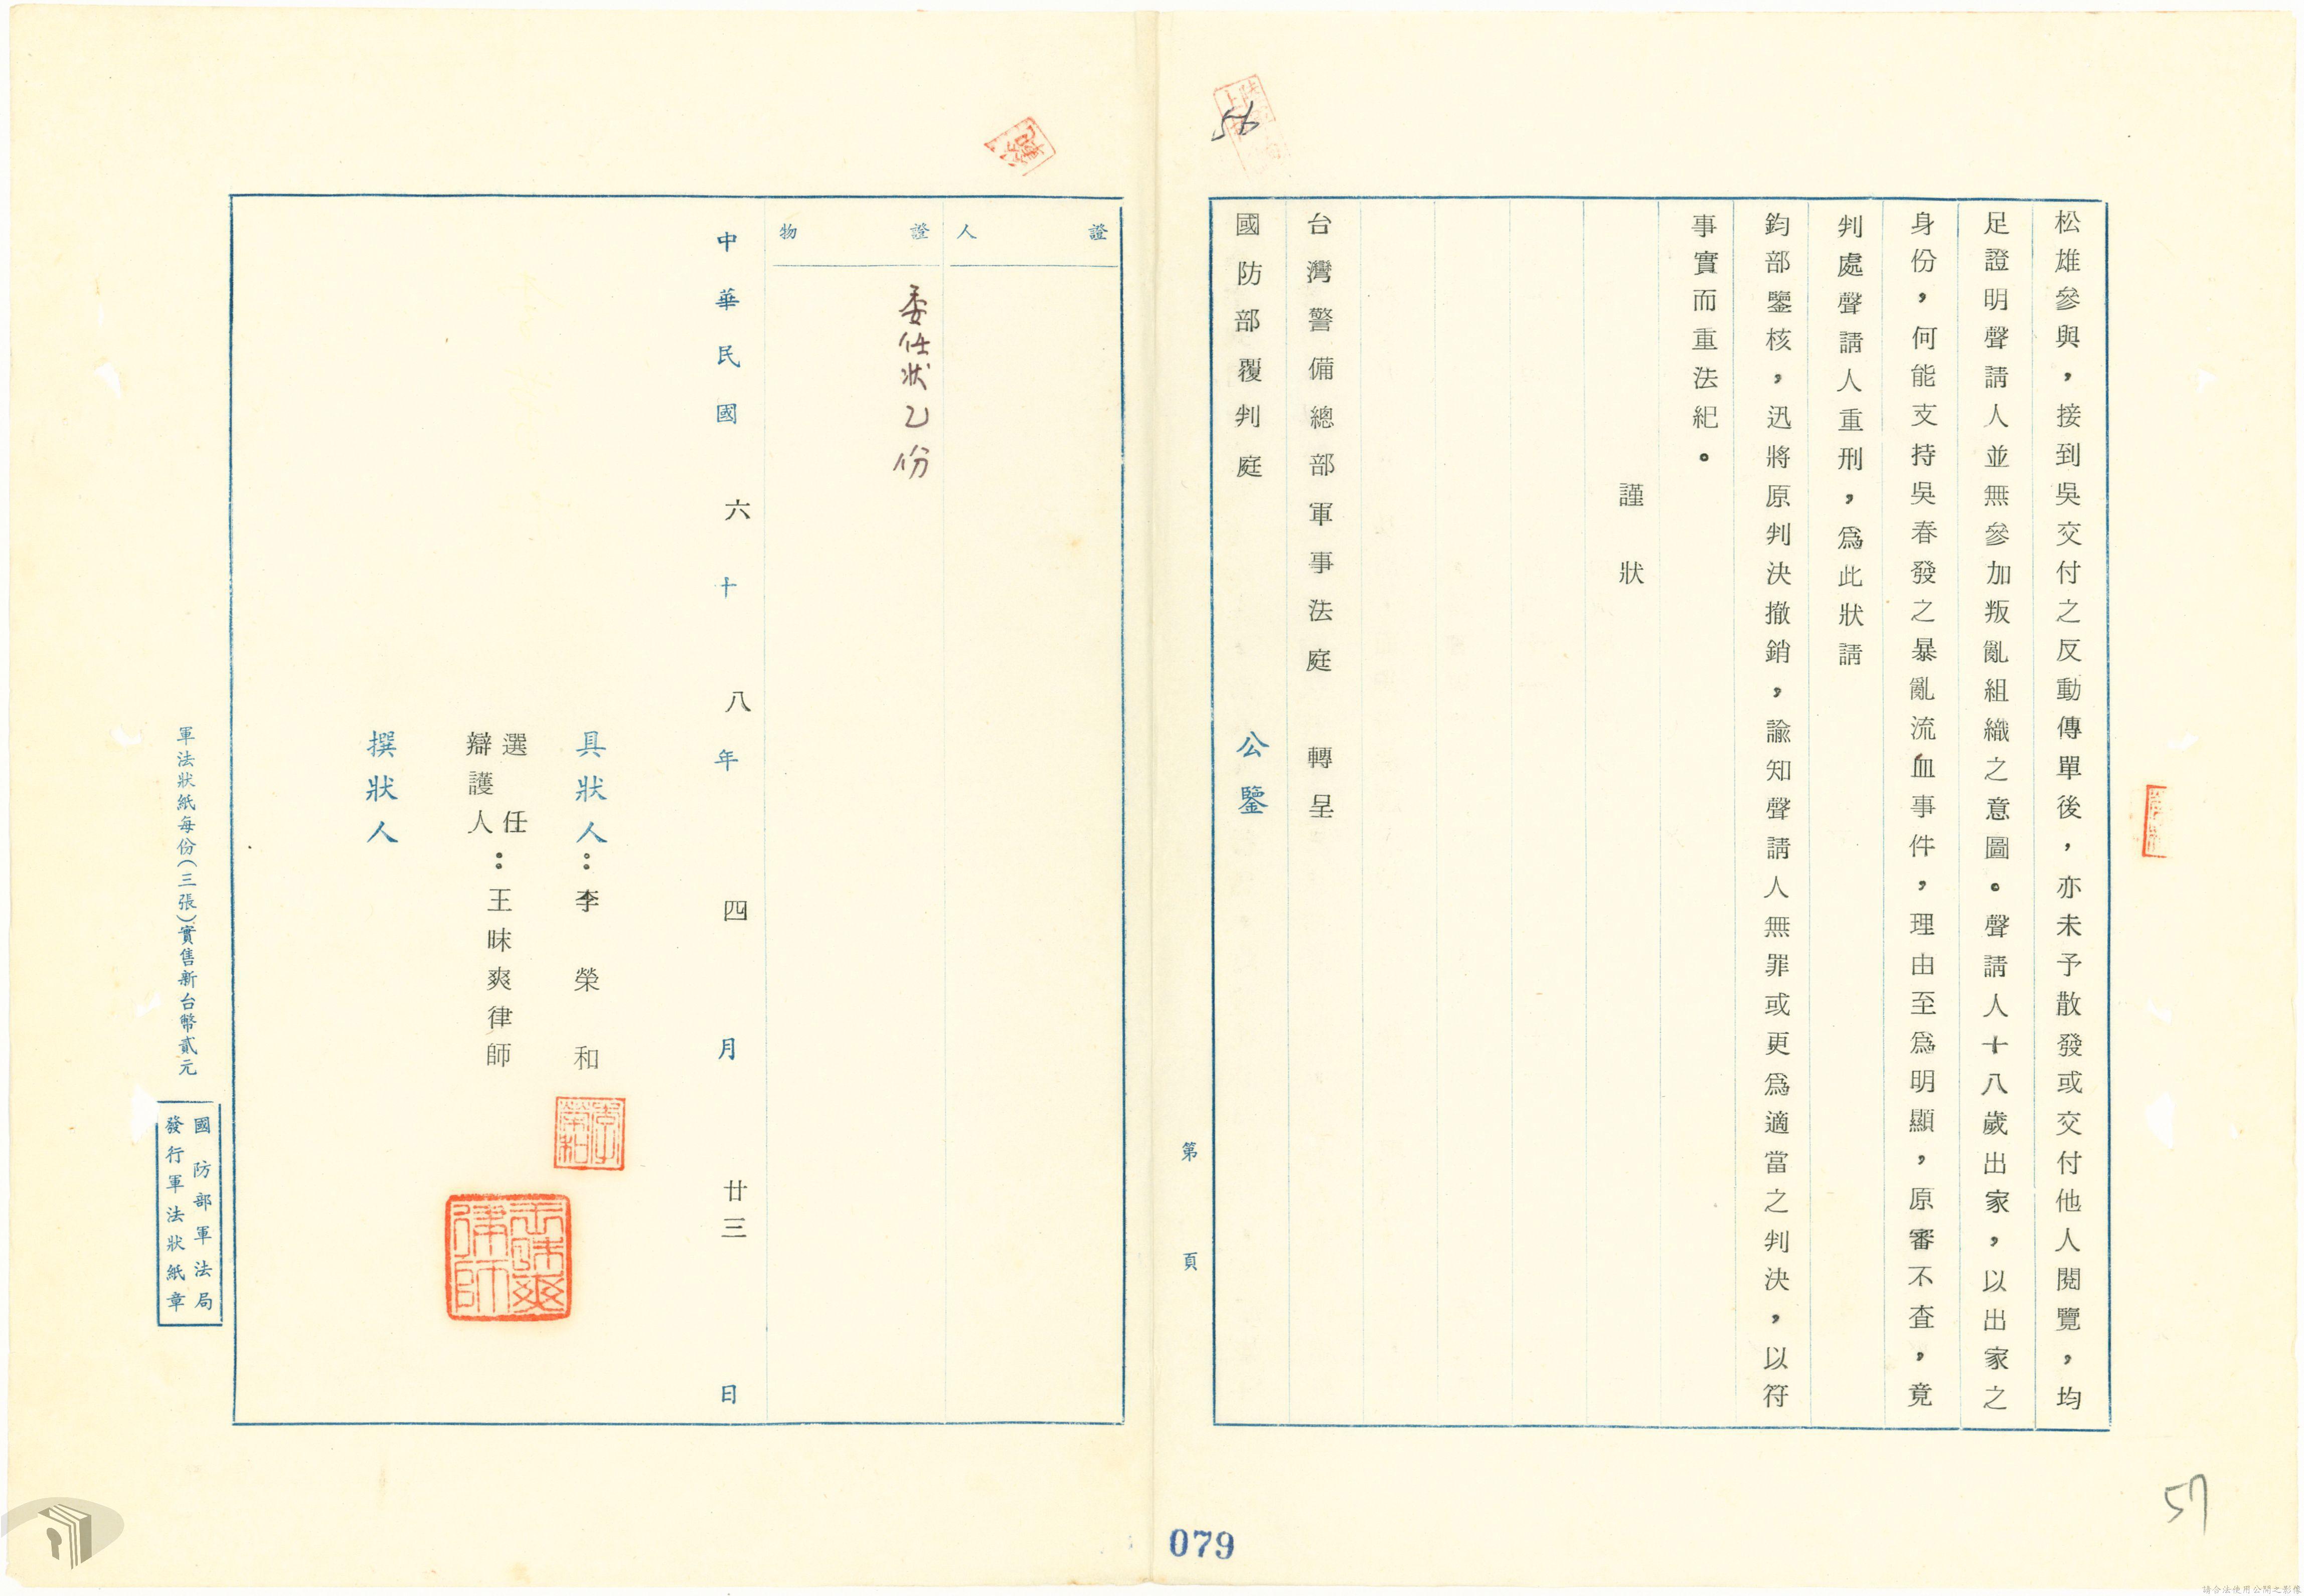 松雄參與，接到吳交付之反動傳單後，亦未予散發或交付他人閱覽，均
足證明聲請人並無參加叛亂組織之意圖。聲請人十八歲出家，以出家之
身份，何能支持吳春發之暴亂流血事件，理由至爲明顯，原審不查，竟
判處聲請人重刑，爲此狀請
鈞部鑒核，迅將原判決撤銷，諭知聲請人無罪或更爲適當之判決，以符
事實而重法紀。
謹狀
台灣警備總部軍事法庭　轉呈
國防部覆判庭　公鑒
第　頁
56
證人
證物
委任狀乙份
中華民國六十八年四月廿三日
具狀人：李榮和
李榮和
選任
辯護人：王昧爽律師
王昧爽律師
撰狀人
軍法狀紙每份（三張）實售新台幣貳元
國防部軍法局
發行軍法狀紙章
079
57
請合法使用公開之影像